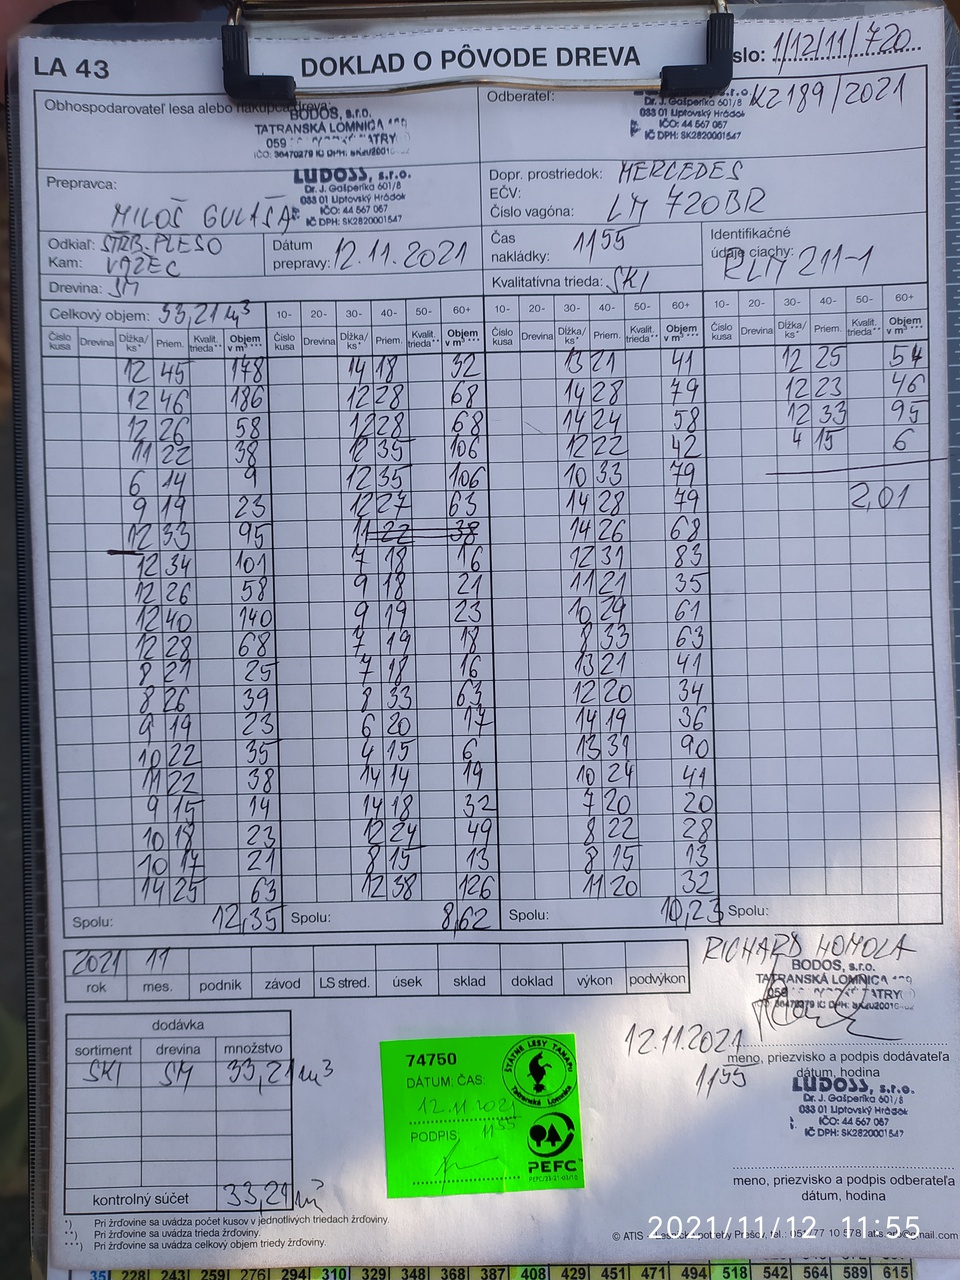 LA 43
DOKLAD O PÔVODE DREVA
slo: 1/12/11/720
Obhospodarovateľ lesa alebo nákupca dreva:
BODOS, s.r.o.
TATRANSKÁ LOMNICA
059
Odberateľ:
Dr. J. Gašperíka 601/8
033 01 Liptovský Hrádok
IČO: 44 567 067
IČ DPH: SK2820001547
KZ189/2021
Prepravca:
MILOŠ GULAŠA
LUDOSS, s.r.o.
Dr. J. Gašperíka 601/8
033 01 Liptovský Hrádok
IČO: 44 567 067
IČ DPH: SK2820001547
Dopr. prostriedok: MERCEDES
EČV:
Číslo vagóna: LM 720BR
Odkiaľ: ŠTRB.PLESO
Kam: VAZEC
Dátum
prepravy: 12.11.2021
Čas
nakládky: 1155
Identifikačné
údaje ciachy:
RLM 211-1
Drevina: SM
Kvalitatívna trieda: SKI
Celkový objem: 33,21 m³
10- 20- 30- 40- 50- 60+ 10- 20- 30- 40- 50- 60+ 10- 20- 30- 40- 50- 60+
Číslo kusa Drevina Dĺžka/ ks* Priem. Kvalit. trieda** Objem v m³ *** Číslo kusa Drevina Dĺžka/ ks* Priem. Kvalit. trieda** Objem v m³ *** Číslo kusa Drevina Dĺžka/ ks* Priem. Kvalit. trieda** Objem v m³ *** Číslo kusa Drevina Dĺžka/ ks* Priem. Kvalit. trieda** Objem v m³ ***
12 45 178 14 18 32 13 21 41 12 25 54
12 46 186 12 28 68 14 28 79 12 23 46
12 26 58 12 28 68 14 24 58 12 33 95
11 22 38 12 35 106 12 22 42 4 15 6
6 14 9 12 35 106 10 33 79
9 19 23 12 27 63 14 28 79 2,01
12 33 95 11 22 38 14 26 68
12 34 101 7 18 16 12 31 83
12 26 58 9 18 21 11 21 35
12 40 140 9 19 23 10 29 61
12 28 68 7 19 18 8 33 63
8 21 25 7 18 16 13 21 41
8 26 39 8 33 63 12 20 34
9 19 23 6 20 17 14 19 36
10 22 35 4 15 6 13 31 90
11 22 38 14 14 19 10 24 41
9 15 14 14 18 32 7 20 20
10 18 23 12 24 49 8 22 28
10 17 21 8 15 13 8 15 13
14 25 63 12 38 126 11 20 32
Spolu: 12,35 Spolu: 8,62 Spolu: 10,23 Spolu:
2021 11
rok mes. podnik závod LS stred. úsek sklad doklad výkon podvýkon
RICHARD HOMOLA
BODOS, s.r.o.
TATRANSKÁ LOMNICA
12.11.2021
meno, priezvisko a podpis dodávateľa
dátum, hodina
1155
LUDOSS, s.r.o.
Dr. J. Gašperíka 601/8
033 01 Liptovský Hrádok
IČO: 44 567 067
IČ DPH: SK2820001547
meno, priezvisko a podpis odberateľa
dátum, hodina
dodávka
sortiment drevina množstvo
SKI SM 33,21 m³
kontrolný súčet 33,21 m³
74750
DÁTUM: ČAS:
12.11.2021
PODPIS: 1155
ŠTÁTNE LESY TANAPU
Tatranská Lomnica
PEFC
*) Pri žrďovine sa uvádza počet kusov v jednotlivých triedach žrďoviny.
**) Pri žrďovine sa uvádza trieda žrďoviny.
***) Pri žrďovine sa uvádza celkový objem triedy žrďoviny.
© ATIS - Lesnícke potreby Prešov, tel.:
2021/11/12 11:55
35 228 243 259 276 294 310 329 348 368 387 408 429 451 471 494 518 542 564 589 615